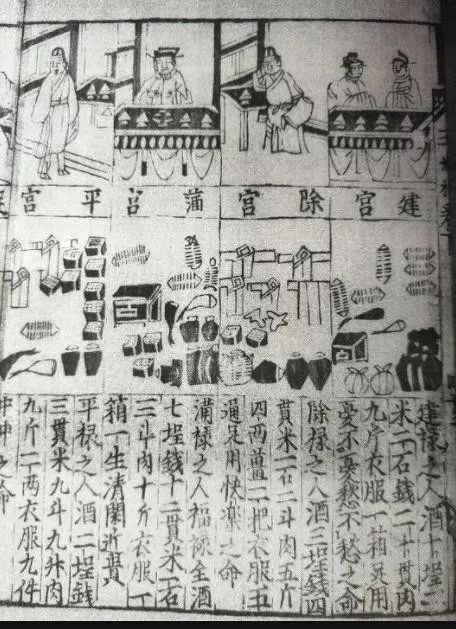 建宮
除宮
蒲宮
平宮
建禄之人酒十埕二
米二石錢二十貫肉
九斤衣服一箱足用
憂不憂愁不愁之命
除禄之人酒三埕錢四
貫米二石二斗肉五斤
四两薑二把衣服五
通足用快楽之命
蒲禄之人福禄全酒
七埕錢十二貫米一石
三斗肉十斤衣服一
箱一生清閑近貴
平禄之人酒二埕錢
三貫米九斗九升肉
九斤二两衣服九件
中中之命